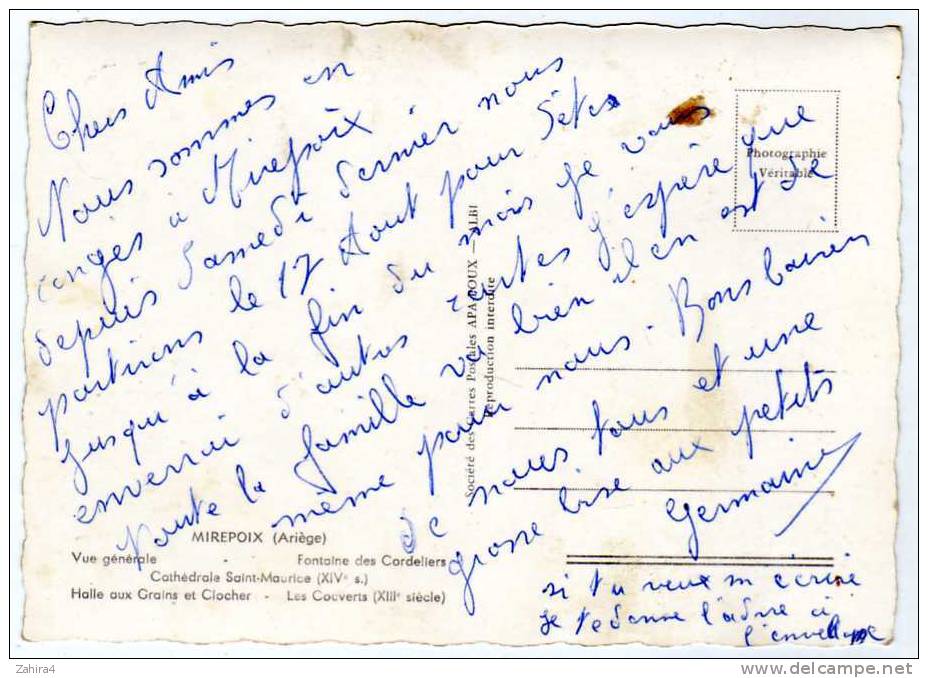 Chers Amis
Nous sommes en
congés à Mirepoix
depuis samedi dernier nous
partirons le 17 Aout pour Sète
jusqu'à la fin du mois je vous
enverrai d'autres cartes j'espère que
toute la famille va bien il en est de
même pour nous. Bons baisers
de nous tous et une
grosse bise aux petits
Germaine
si tu veux m'écrire
je te donne l'adresse
l'enveloppe
Photographie
Véritable
Société des Cartes Postales APA-POUX - ALBI
Reproduction interdite
MIREPOIX (Ariège)
Vue générale - Fontaine des Cordeliers
Cathédrale Saint-Maurice (XIVe s.)
Halle aux Grains et Clocher - Les Couverts (XIIIe siècle)
Zahira4
www.delcampe.net